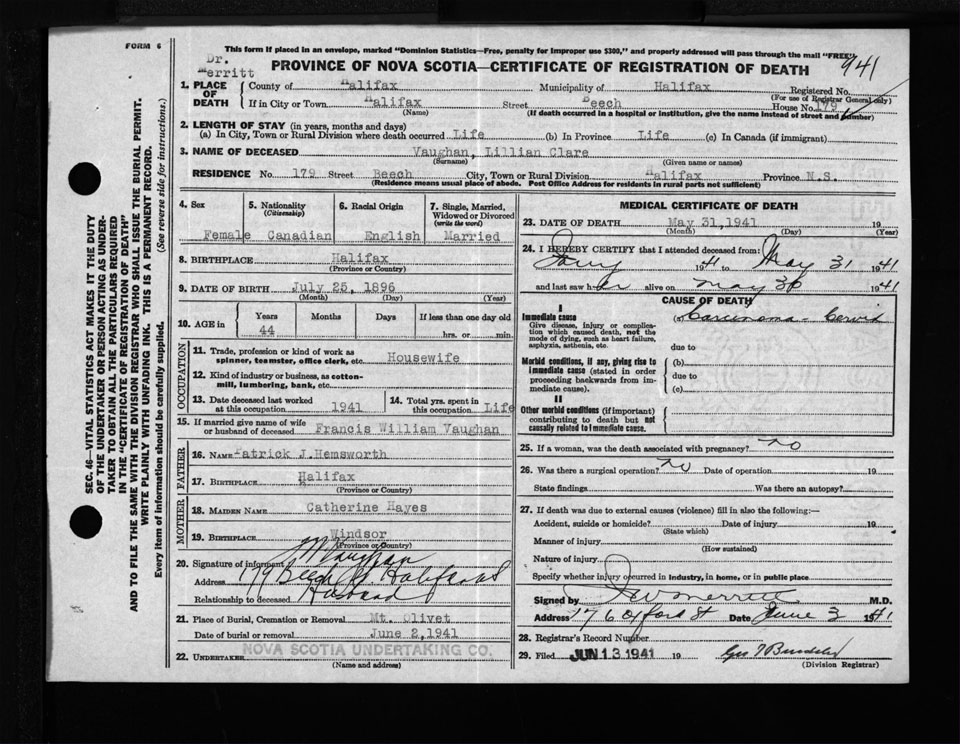 FORM 6
This form if placed in an envelope, marked "Dominion Statistics—Free, penalty for improper use $300," and properly addressed will pass through the mail "FREE"
Dr. Merritt
PROVINCE OF NOVA SCOTIA—CERTIFICATE OF REGISTRATION OF DEATH
941
1. PLACE OF DEATH
County of Halifax Municipality of Halifax Registered No.
(For use of Registrar General only)
If in City or Town Halifax Street Beech House No. 179
(Name) (If death occurred in a hospital or institution, give the name instead of street and number)
2. LENGTH OF STAY (in years, months and days)
(a) In City, Town or Rural Division where death occurred Life (b) In Province Life (c) In Canada (if immigrant)
3. NAME OF DECEASED Vaughan, Lillian Clare
(Surname) (Given name or names)
RESIDENCE No. 179 Street Beech City, Town or Rural Division Halifax Province N.S.
(Residence means usual place of abode. Post Office Address for residents in rural parts not sufficient)
4. Sex
Female
5. Nationality
(Citizenship)
Canadian
6. Racial Origin
English
7. Single, Married, Widowed or Divorced
(write the word)
Married
8. BIRTHPLACE Halifax
(Province or Country)
9. DATE OF BIRTH July 25, 1896
(Month) (Day) (Year)
10. AGE in Years Months Days If less than one day old
44 hrs. or min.
OCCUPATION
11. Trade, profession or kind of work as
spinner, teamster, office clerk, etc. Housewife
12. Kind of industry or business, as cotton-
mill, lumbering, bank, etc.
13. Date deceased last worked
at this occupation 1941
14. Total yrs. spent in
this occupation Life
15. If married give name of wife
or husband of deceased Francis William Vaughan
FATHER
16. NAME Patrick J. Hemsworth
17. BIRTHPLACE Halifax
(Province or Country)
MOTHER
18. MAIDEN NAME Catherine Hayes
19. BIRTHPLACE Windsor
(Province or Country)
20. Signature of informant Vaughan
Address 179 Beech St Halifax
Relationship to deceased Husband
21. Place of Burial, Cremation or Removal Mt. Olivet
Date of burial or removal June 2, 1941
22. UNDERTAKER NOVA SCOTIA UNDERTAKING CO.
(Name and address)
MEDICAL CERTIFICATE OF DEATH
23. DATE OF DEATH May 31, 1941 19
(Month) (Day) (Year)
24. I HEREBY CERTIFY that I attended deceased from:
1941 to May 31 1941
and last saw her alive on May 30 1941
CAUSE OF DEATH
I
Immediate cause
Give disease, injury or complica-
tion which caused death, not the
mode of dying, such as heart failure,
asphyxia, asthenia, etc.
(a) Carcinoma - Cervix
due to
Morbid conditions, if any, giving rise to
immediate cause (stated in order
proceeding backwards from im-
mediate cause).
(b)
due to
(c)
II
Other morbid conditions (if important)
contributing to death but not
causally related to immediate cause.
25. If a woman, was the death associated with pregnancy? no
26. Was there a surgical operation? no Date of operation 19
State findings Was there an autopsy?
27. If death was due to external causes (violence) fill in also the following:—
Accident, suicide or homicide? Date of injury 19
(State which)
Manner of injury
(How sustained)
Nature of injury
Specify whether injury occurred in industry, in home, or in public place
Signed by Merritt M.D.
Address 176 Oxford St Date June 3 1941
28. Registrar's Record Number
29. Filed JUN 13 1941 19
(Division Registrar)
SEC. 46—VITAL STATISTICS ACT MAKES IT THE DUTY
OF THE UNDERTAKER OR PERSON ACTING AS UNDER-
TAKER TO OBTAIN ALL THE PARTICULARS REQUIRED
IN THE "CERTIFICATE OF REGISTRATION OF DEATH"
AND TO FILE THE SAME WITH THE DIVISION REGISTRAR WHO SHALL ISSUE THE BURIAL PERMIT.
WRITE PLAINLY WITH UNFADING INK. THIS IS A PERMANENT RECORD.
Every item of information should be carefully supplied. (See reverse side for instructions.)